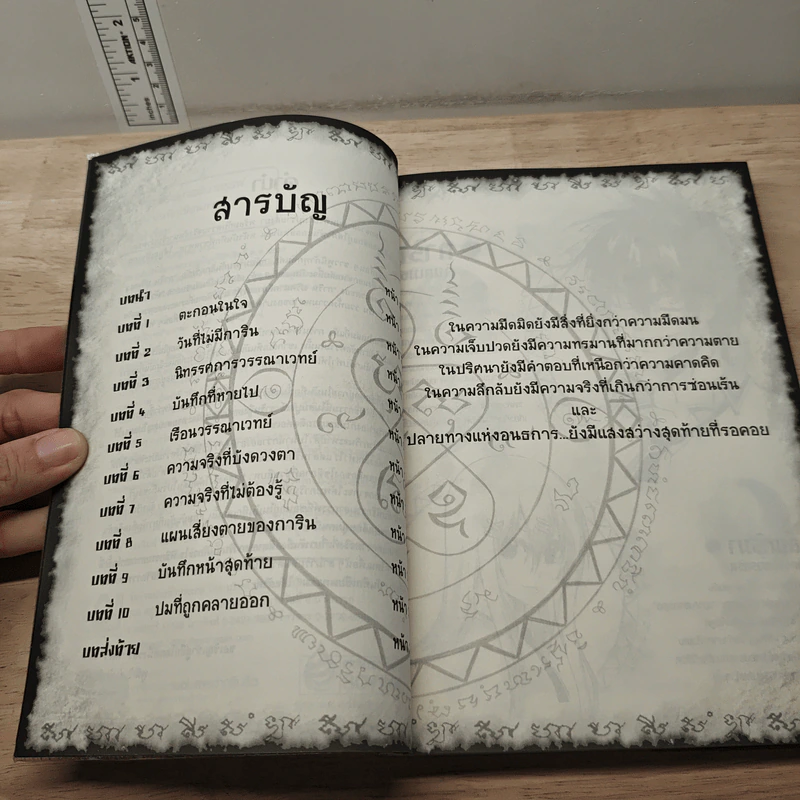 สารบัญ
บทนำ หน้า
บทที่ 1 ตะกอนในใจ หน้า
บทที่ 2 วันที่ไม่มีการิน หน้า
บทที่ 3 นิทรรศการวรรณาเวทย์ หน้า
บทที่ 4 บันทึกที่หายไป หน้า
บทที่ 5 เรือนวรรณาเวทย์ หน้า
บทที่ 6 ความจริงที่บังดวงตา หน้า
บทที่ 7 ความจริงที่ไม่ต้องรู้ หน้า
บทที่ 8 แผนเสี่ยงตายของการิน หน้า
บทที่ 9 บันทึกหน้าสุดท้าย หน้า
บทที่ 10 ปมที่ถูกคลายออก หน้า
บทส่งท้าย หน้า
ในความมืดมิดยังมีสิ่งที่ยิ่งกว่าความมืดมน
ในความเจ็บปวดยังมีความทรมานที่มากกว่าความตาย
ในปริศนายังมีคำตอบที่เหนือกว่าความคาดคิด
ในความลึกลับยังมีความจริงที่เกินกว่าการซ่อนเร้น
และ
ปลายทางแห่งอนธการ...ยังมีแสงสว่างสุดท้ายที่รอคอย